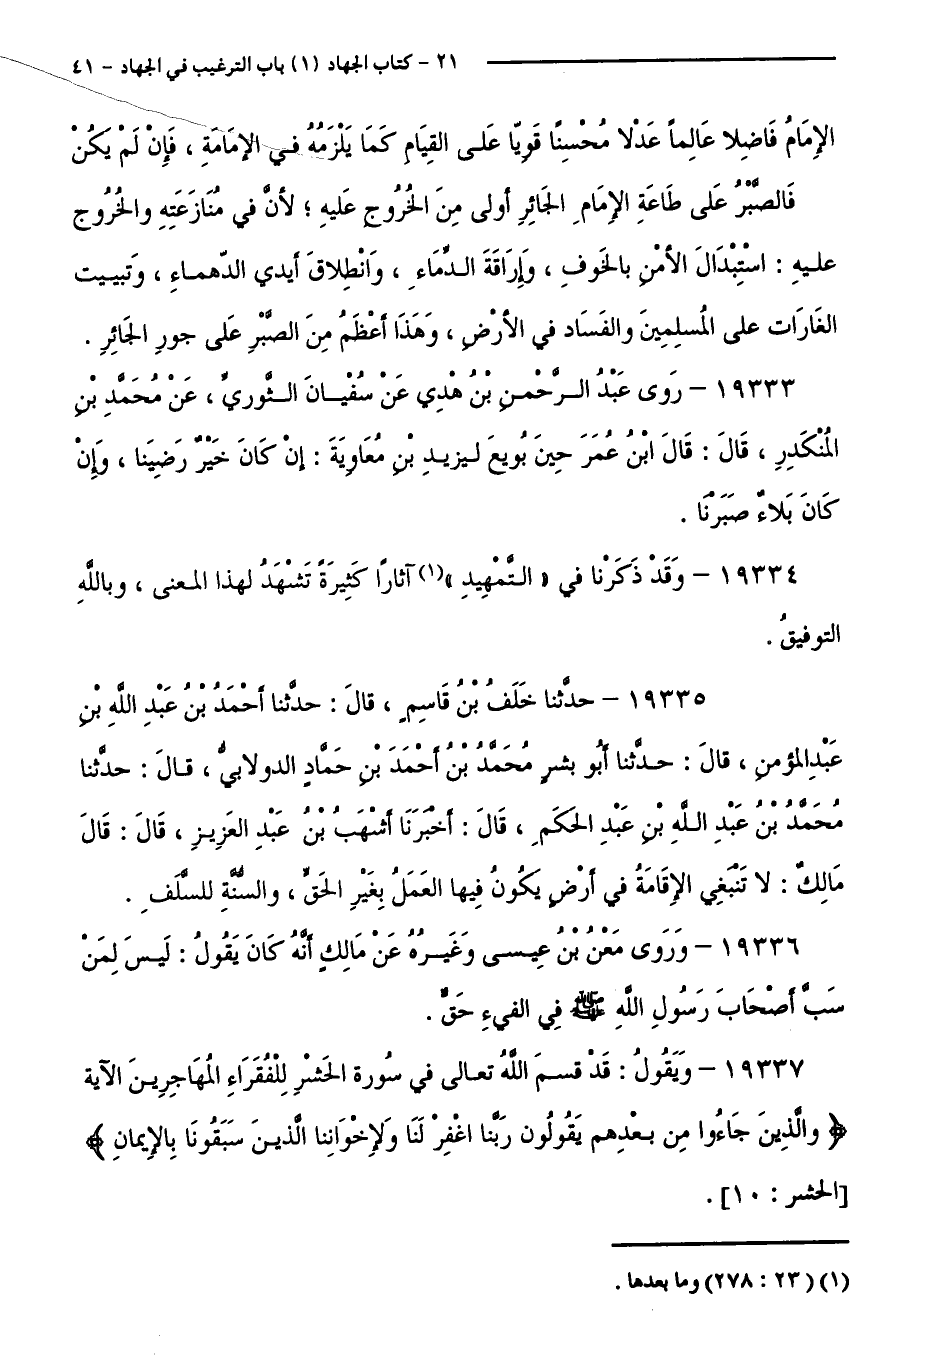 ٢١ – كتاب الجهاد (١) باب الترغيب في الجهاد – ٤١
الإمَامُ فَاضِلا عَالِماً عَدْلا مُحْسِنًا قَويّا عَلـى القِيَامِ كَمَا يَلْزَمُهُ فـي الإمَامَةِ ، فَإِنْ لَمْ يَكُنْ
فَالصَّبْرُ عَلى طَاعَةِ الإمَامِ الجَائرِ أولى مِنَ الخُروُجِ عَليهِ ؛ لأنَّ في مُنَازَعَتِهِ والخُروج
علـيهِ : استِبْدَالَ الأمْنِ بالخَوفِ ، وَإِرَاقَةَ الـدِّمَاءِ ، وَانْطِلاقَ أيدي الدّهمـاءِ ، وَتَبييت
الغَارَات على المُسلِمِينَ والفَسَاد في الأرْضِ ، وَهَذَا أعْظَمُ مِنَ الصَّبْرِ عَلى جورِ الجَائرِ .
١٩٣٣٣ – رَوى عَبْدُ الـرَّحْمـنِ بْنُ هْدِي عَنْ سُفْيـانَ الـثَّوريِّ ، عَنْ مُحَمَّدِ بْنِ
المُنْكَدِرِ ، قَالَ : قَالَ ابْنُ عُمَرَ حِينَ بُويعَ لـيزيـدِ بْنِ مُعَاوِيَةَ : إنْ كَانَ خَيْرٌ رَضِيَنا ، وَإِنْ
كَانَ بَلاءٌ صَبَرْنَا .
١٩٣٣٤ – وَقَدْ ذَكَرْنا في « الـتَّمْهِيدِ »(١) آثارًا كَثِيرَةً تَشْهَدُ لهذا المـعنى ، وباللَّهِ
التوفيقُ .
١٩٣٣٥ – حدَّثنا خَلَفُ بْنُ قَاسِمٍ ، قالَ : حدَّثنا أحْمَدُ بْنُ عَبْدِ اللَّهِ بْنِ
عَبْدِالمؤمنِ ، قالَ : حـدَّثنا أبُو بشرٍ مُحَمَّدُ بْنُ أحْمَدَ بْنِ حَمَّادٍ الدولابيُّ ، قـالَ : حدَّثنا
مُحَمَّدُ بْنُ عَبْدِ الـلَّهِ بْنِ عَبْدِ الحَكَمِ ، قَالَ : أخْبَرَنَا أشْهَبُ بْنُ عَبْدِ العَزِيـزِ ، قَالَ : قَالَ
مَالِكٌ : لا تَنْبَغِي الإقَامَةُ في أرْضٍ يَكُونُ فِيها العَمَلُ بِغَيْرِ الحَقِّ ، والسُّنَّةِ للسَّلَفِ .
١٩٣٣٦ – وَرَوى مَعْنُ بْنُ عِيـسى وَغَيـرُهُ عَنْ مَالِكٍ أنَّهُ كَانَ يَقُولُ : لَيـسَ لِمَنْ
سَبَّ أصْحَابَ رَسُولِ اللَّهِ ﷺ فِي الفيءِ حَقٌّ .
١٩٣٣٧ – وَيَقُولُ : قَدْ قسمَ اللَّهُ تعـالى في سُورة الحَشْرِ لِلْفُقَرَاءِ المُهَاجِرِيـنَ الآية
﴿ والَّذِينَ جَاءُوا مِن بـعْدِهم يَقُولُون رَبَّنا اغْفِرْ لَنَا وَلإخْوَانِنا الَّذيـنَ سَبَقُونَا بِالإيمانِ ﴾
[الحشر : ١٠] .
(١) (٢٣ : ٢٧٨) وما بعدها .